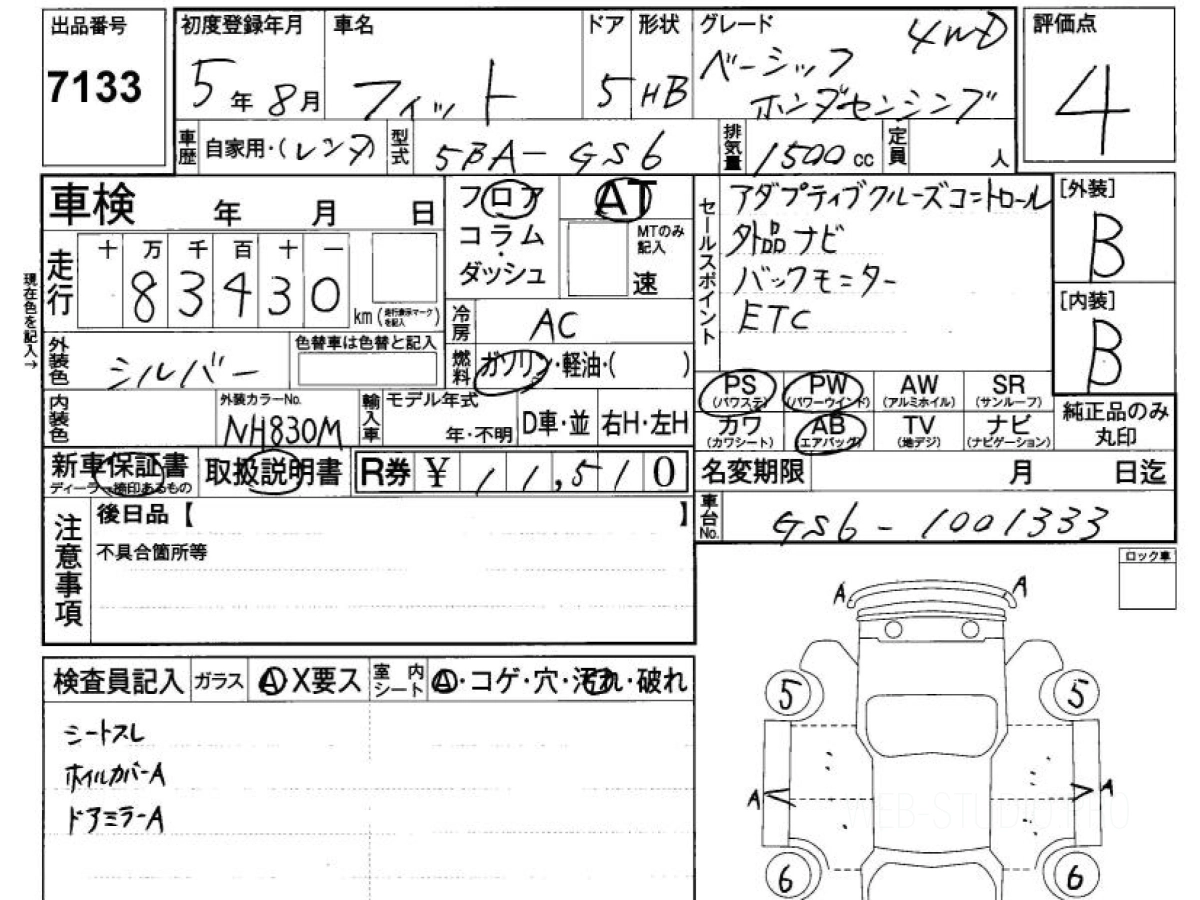 出品番号
7133
初度登録年月
5年8月
車名
フィット
ドア
5
形状
HB
グレード
4WD
ベーシック
ホンダセンシング
評価点
4
車歴
自家用・(レンタ)
型式
5BA-GS6
排気量
1500cc
定員
人
車検 年 月 日
フロア
コラム・
ダッシュ
AT
MTのみ記入
速
セールスポイント
アダプティブクルーズコントロール
外品ナビ
バックモニター
ETC
[外装]
B
[内装]
B
現在色を記入→
走行
十 万 千 百 十 一
8 3 4 3 0
km(走行表示マークを記入)
冷房
AC
外装色
シルバー
色替車は色替と記入
燃料
ガソリン・軽油・( )
PS
(パワステ)
PW
(パワーウインド)
AW
(アルミホイル)
SR
(サンルーフ)
カワ
(カワシート)
AB
(エアバック)
TV
(地デジ)
ナビ
(ナビゲーション)
純正品のみ
丸印
内装色
外装カラーNo.
NH830M
輸入車
モデル年式
年・不明
D車・並
右H・左H
新車保証書
ディーラー捺印あるもの
取扱説明書
R券 ¥ 11,510
名変期限 月 日迄
車台No.
GS6-1001333
注意事項
後日品【 】
不具合箇所等
ロック車
検査員記入
ガラス
A X要ス
室内シート
A・コゲ・穴・汚れ・破れ
シートスレ
ホイルカバーA
ドアミラーA
A A
5 5
A A
6 6
WEB-STUDIO.PRO